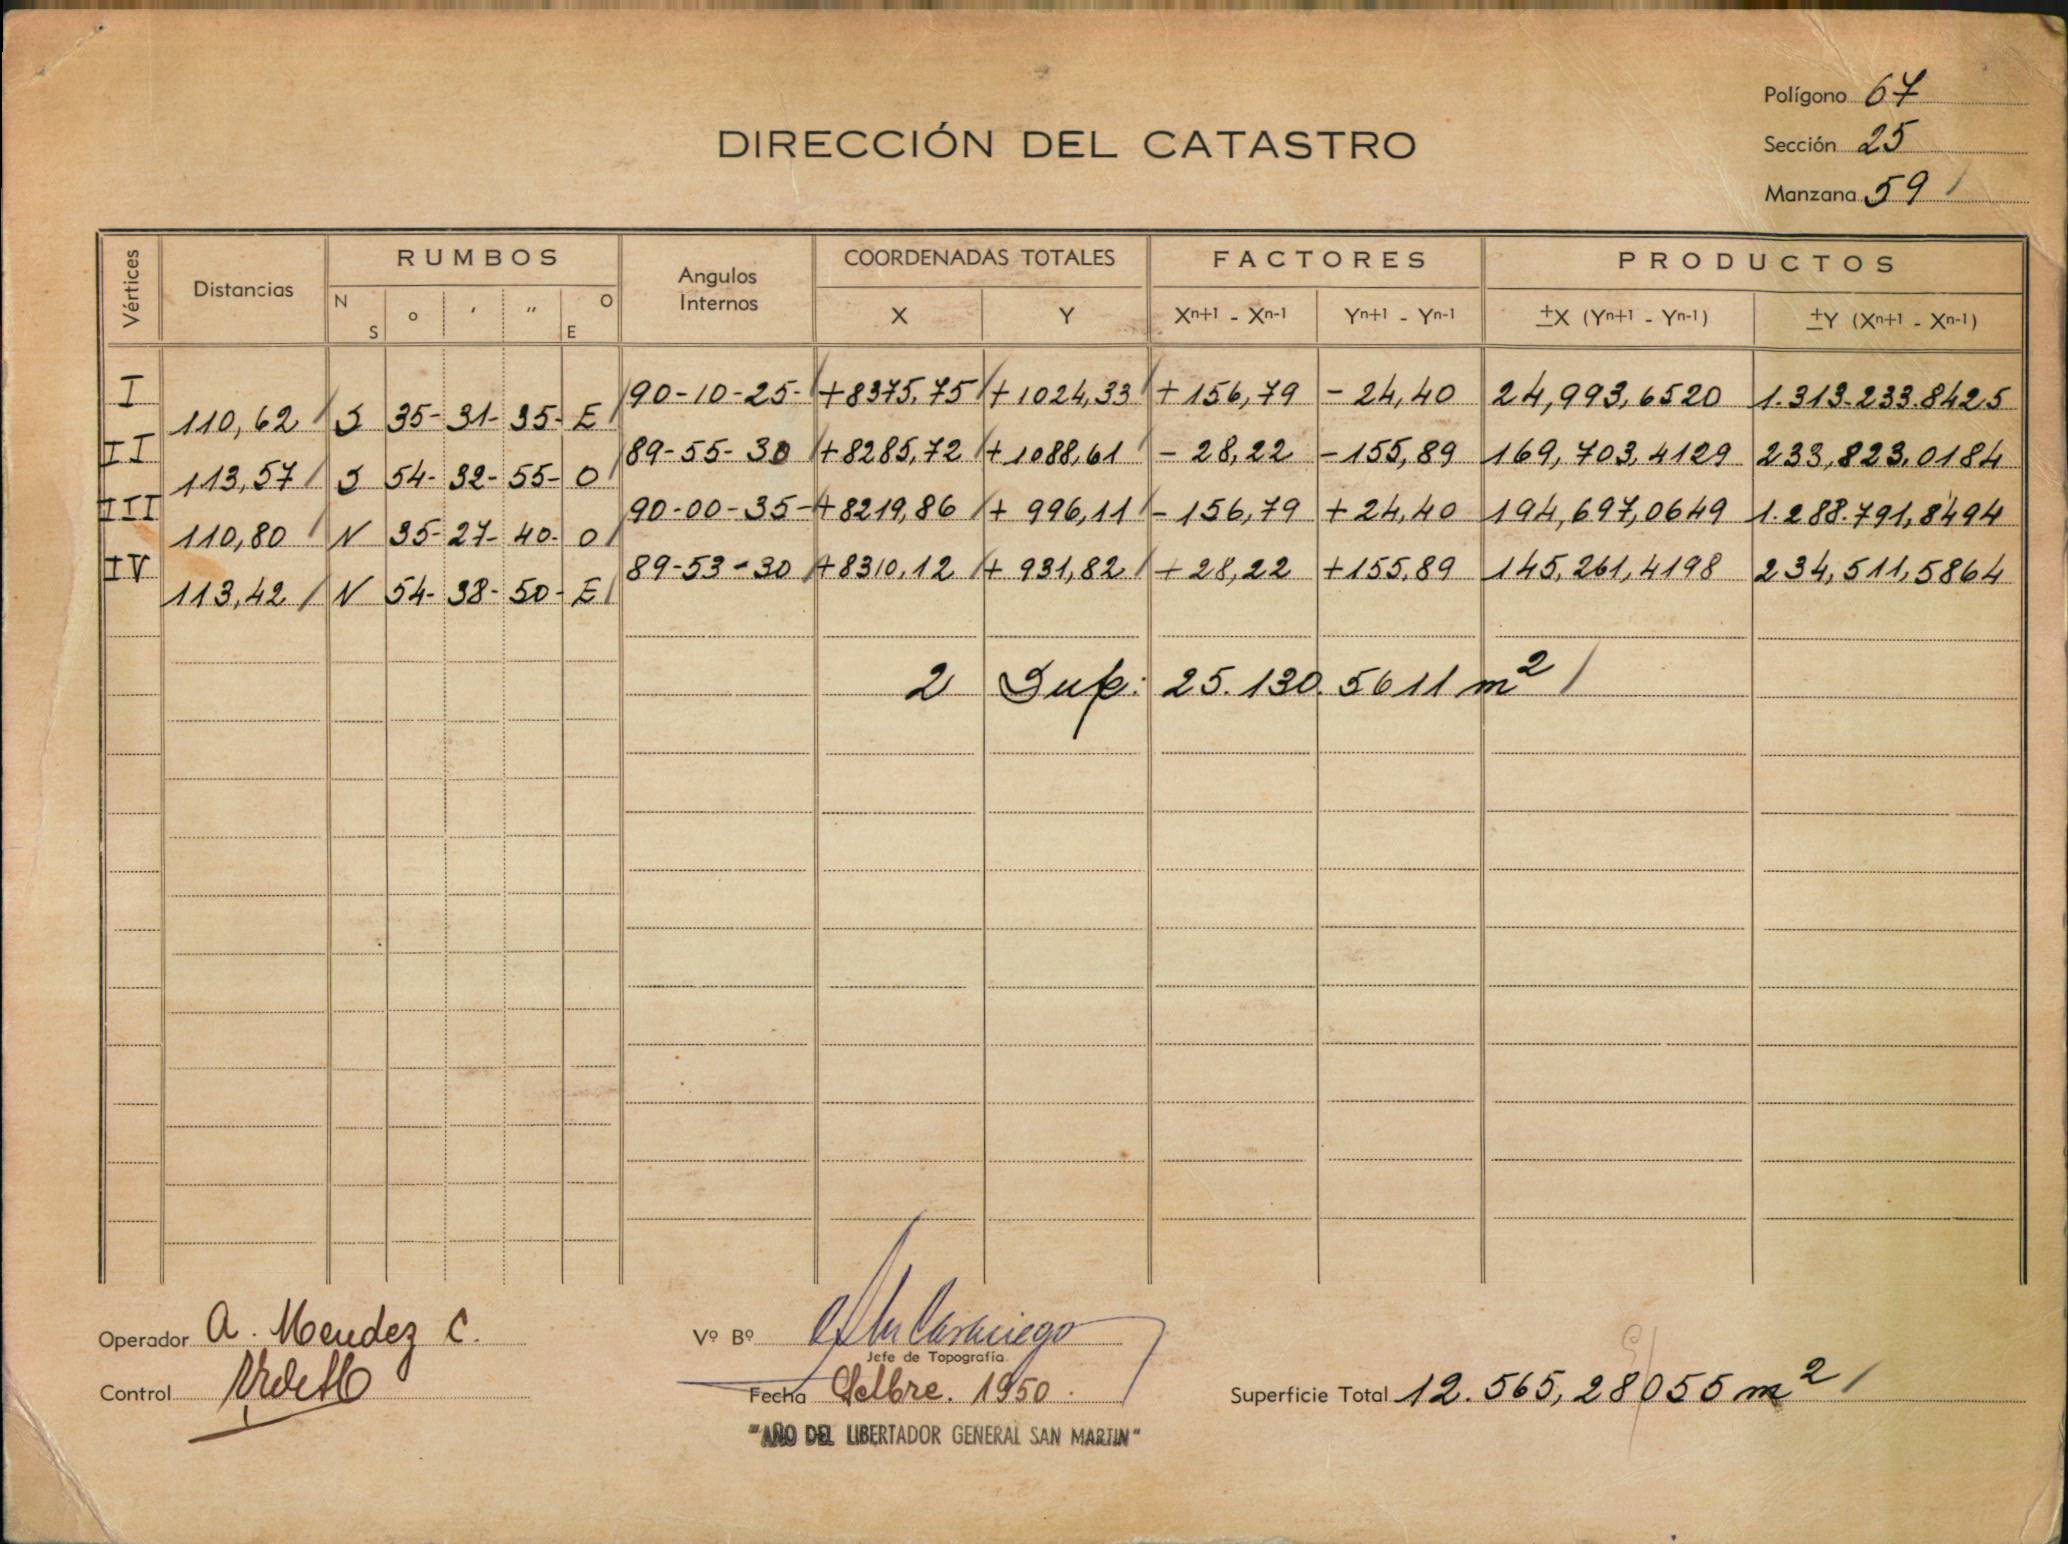 Polígono 67
DIRECCIÓN DEL CATASTRO
Sección 25
Manzana 59
Vértices Distancias RUMBOS Angulos Internos COORDENADAS TOTALES FACTORES PRODUCTOS
N S o ' " O E X Y Xn+1 - Xn-1 Yn+1 - Yn-1 ±X (Yn+1 - Yn-1) ±Y (Xn+1 - Xn-1)
I 90-10-25- +8375,75 +1024,33 +156,79 -24,40 24,993,6520 1.313.233.8425
110,62 S 35- 31- 35- E
II 89-55-30 +8285,72 +1088,61 -28,22 -155,89 169,703,4129 233,823,0184
113,57 S 54- 32- 55- O
III 90-00-35- +8219,86 +996,11 -156,79 +24,40 194,697,0649 1.288.791,8494
110,80 N 35- 27- 40- O
IV 89-53-30 +8310,12 +931,82 +28,22 +155,89 145,261,4198 234,511,5864
113,42 N 54- 38- 50- E
2 Sup: 25.130.5611 m²
Operador A. Mendez C. Vº Bº
Jefe de Topografía
Control Fecha 1950. Superficie Total 12.565,28055 m²
"AÑO DEL LIBERTADOR GENERAL SAN MARTIN"